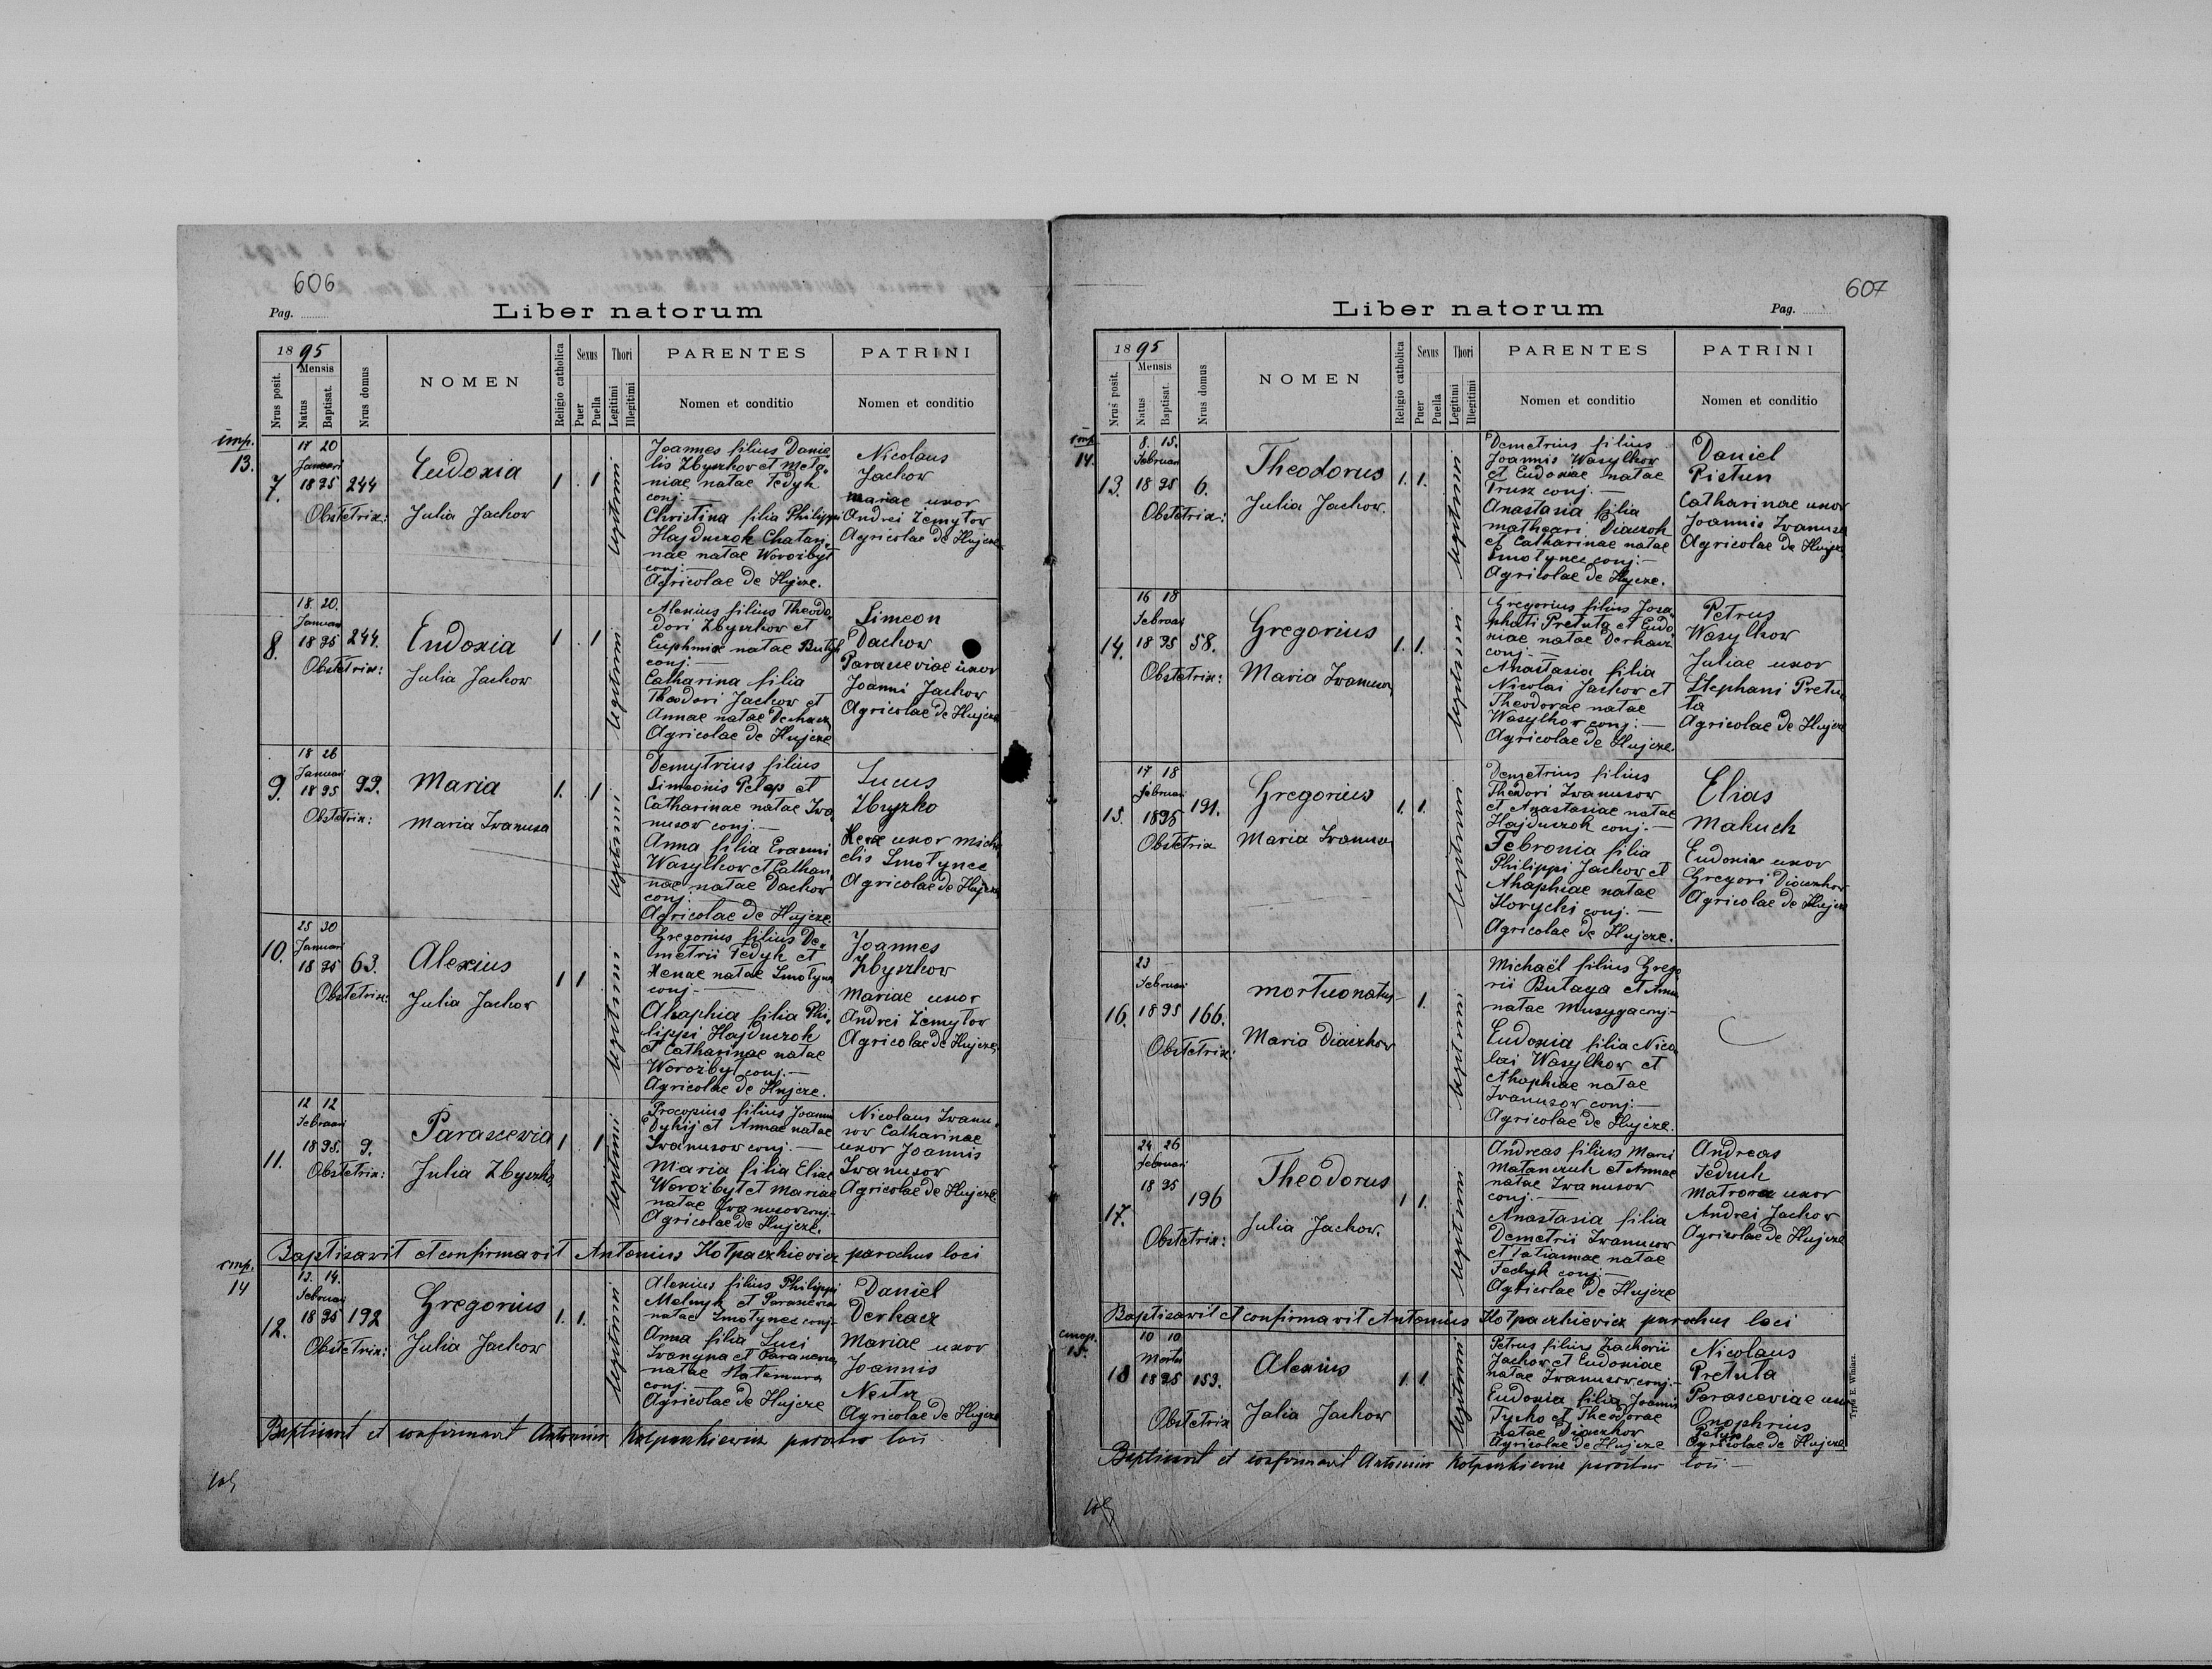 606
Pag.
Liber natorum
1895
Mensis
Nrus posit.
Natus
Baptisat.
Nrus domus
NOMEN
Religio catholica
Sexus
Puer
Puella
Thori
Legitimi
Illegitimi
PARENTES
Nomen et conditio
PATRINI
Nomen et conditio
imp.
13.
7.
17 20
Januari
1895 244
Obstetrix:
Eudoxia
Julia Jachow
1 1
legitimi
Joannes filius Danie-
lis Zbyszkov et Mela-
niae natae Fedyk
conj.—
Christina filia Philippi
Hajduczok Chatari-
nae natae Worozbyt
conj.—
Agricolae de Hujcze.
Nicolaus
Jachow
Mariae uxor
Andrei Zemytow
Agricolae de Hujcze
8.
18. 20.
Januari
1895 244.
Obstetrix:
Eudoxia
Julia Jachow
1 1
legitimi
Alexius filius Theodo-
dori Zbyszkow et
Euphmiae natae Butyk
conj.—
Catharina filia
Theodori Jachow et
Annae natae Derkacz
Agricolae de Hujcze
Simeon
Dachow
Parasceviae uxor
Joanni Jachow
Agricolae de Hujcze
9.
18 26
Januari
1895 99.
Obstetrix:
Maria
Maria Iwanusa
1. 1
legitimi
Demytrius filius
Simeonis Pelap et
Catharinae natae Iwa-
nusow conj.—
Anna filia Erasmi
Wasylkow et Cathari-
nae natae Dachow
conj.
Agricolae de Hujcze.
Lucus
Zbyszko
uxor Micha-
elis Smolynec
Agricolae de Hujcze
10.
25 30
Januari
1895 63.
Obstetrix:
Alexius
Julia Jachow
1 1
legitimi
Gregorius filius De-
metrii Fedyk et
Xenae natae Smolynec
conj.—
Ahaphia filia Phi-
lippi Hajduczok
et Catharinae natae
Worozbyt conj.—
Agricolae de Hujcze.
Joannes
Zbyszkow
Mariae uxor
Andrei Zemytow
Agricolae de Hujcze.
11.
12 12
Februari
1895. 9.
Obstetrix:
Parascevia
Julia Zbyszko
1 1
legitimi
Procopius filius Joannis
Dykij et Annae natae
Iwanusow conj.—
Maria filia Eliae
Worozbyt et Mariae
natae Iwanusow conj.
Agricolae de Hujcze.
Nicolaus Iwanu-
sow Catharinae
uxor Joannis
Iwanusow
Agricolae de Hujcze.
Baptisavit et confirmavit Antonius Kolpaczkiewicz parochus loci
imp.
14
12.
13. 14.
Februari
1895 192
Obstetrix:
Gregorius
Julia Jachow
1. 1.
legitimi
Alexius filius Philippi
Melnyk et Parasceviae
natae Smolynec conj.
Anna filia Luci
Iwanyna et Parasceviae
natae
conj.—
Agricolae de Hujcze
Daniel
Derkacz
Mariae uxor
Joannis
Nestu
Agricolae de Hujcze
Baptisavit et confirmavit Antonius Kolpaczkiewicz parochus loci
607
Liber natorum
Pag.
1895
Mensis
Nrus posit.
Natus
Baptisat.
Nrus domus
NOMEN
Religio catholica
Sexus
Puer
Puella
Thori
Legitimi
Illegitimi
PARENTES
Nomen et conditio
PATRINI
Nomen et conditio
imp.
14.
13.
8. 15.
Februari
1895 6.
Obstetrix:
Theodorus
Julia Jachow.
1. 1.
legitimi
Demetrius filius
Joannis Wasylkow
et Eudoxiae natae
Trusz conj.—
Anastasia filia
Mathaei Diaczok
et Catharinae natae
Smolynec conj.—
Agricolae de Hujcze.
Daniel
Pistun
Catharinae uxor
Joannis Iwanusa
Agricolae de Hujcze
14.
16 18
Februari
1895 58.
Obstetrix:
Gregorius
Maria Iwanusow
1. 1.
legitimi
Gregorius filius Josa-
phati Pretula et Eudo-
xiae natae Derkacz
conj.—
Anastasia filia
Nicolai Jachow et
Theodorae natae
Wasylkow conj.—
Agricolae de Hujcze.
Petrus
Wasylkow
Juliae uxor
Stephani Pretu-
la
Agricolae de Hujcze
15.
17 18
Februari
1895 191.
Obstetrix
Gregorius
Maria Iwanusa
1. 1.
legitimi
Demetrius filius
Theodori Iwanusow
et Anastasiae natae
Hajduczok conj.—
Febronia filia
Philippi Jachow et
Ahaphiae natae
Korycki conj.—
Agricolae de Hujcze.
Elias
Makuch
Eudoxiae uxor
Gregori Diaczkow
Agricolae de Hujcze
16.
23
Februari
1895 166.
Obstetrix:
mortuonatus
Maria Diaczkow
1.
legitimi
Michaël filius Grego-
rii Butaya et Annae
natae Musyga conj.—
Eudoxia filia Nico-
lai Wasylkow et
Ahaphiae natae
Iwanusow conj.—
Agricolae de Hujcze.
17.
24 26
Februari
1895
196
Obstetrix:
Theodorus
Julia Jachow.
1 1.
legitimi
Andreas filius Marci
Matanczuk et Annae
natae Iwanusow
conj.—
Anastasia filia
Demetrii Iwanusow
et Tatiannae natae
Fedyk conj.—
Agricolae de Hujcze
Andreas
Fediuk
Matronae uxor
Andrei Jachow
Agricolae de Hujcze
Baptisavit et confirmavit Antonius Kolpaczkiewicz parochus loci
18
10 10
Martii
1895 153.
Obstetrix
Alexius
Julia Jachow
1. 1.
legitimi
Petrus filius Zacharii
Jachow et Eudoxiae
natae Iwanusow conj.—
Eudoxia filia Joannis
Tycho et Theodorae
natae Diaczkow
Agricolae de Hujcze
Nicolaus
Pretula
Parasceviae uxor
Onophrius
Agricolae de Hujcze
Baptisavit et confirmavit Antonius Kolpaczkiewicz parochus loci —
Typis E. Winiarz.